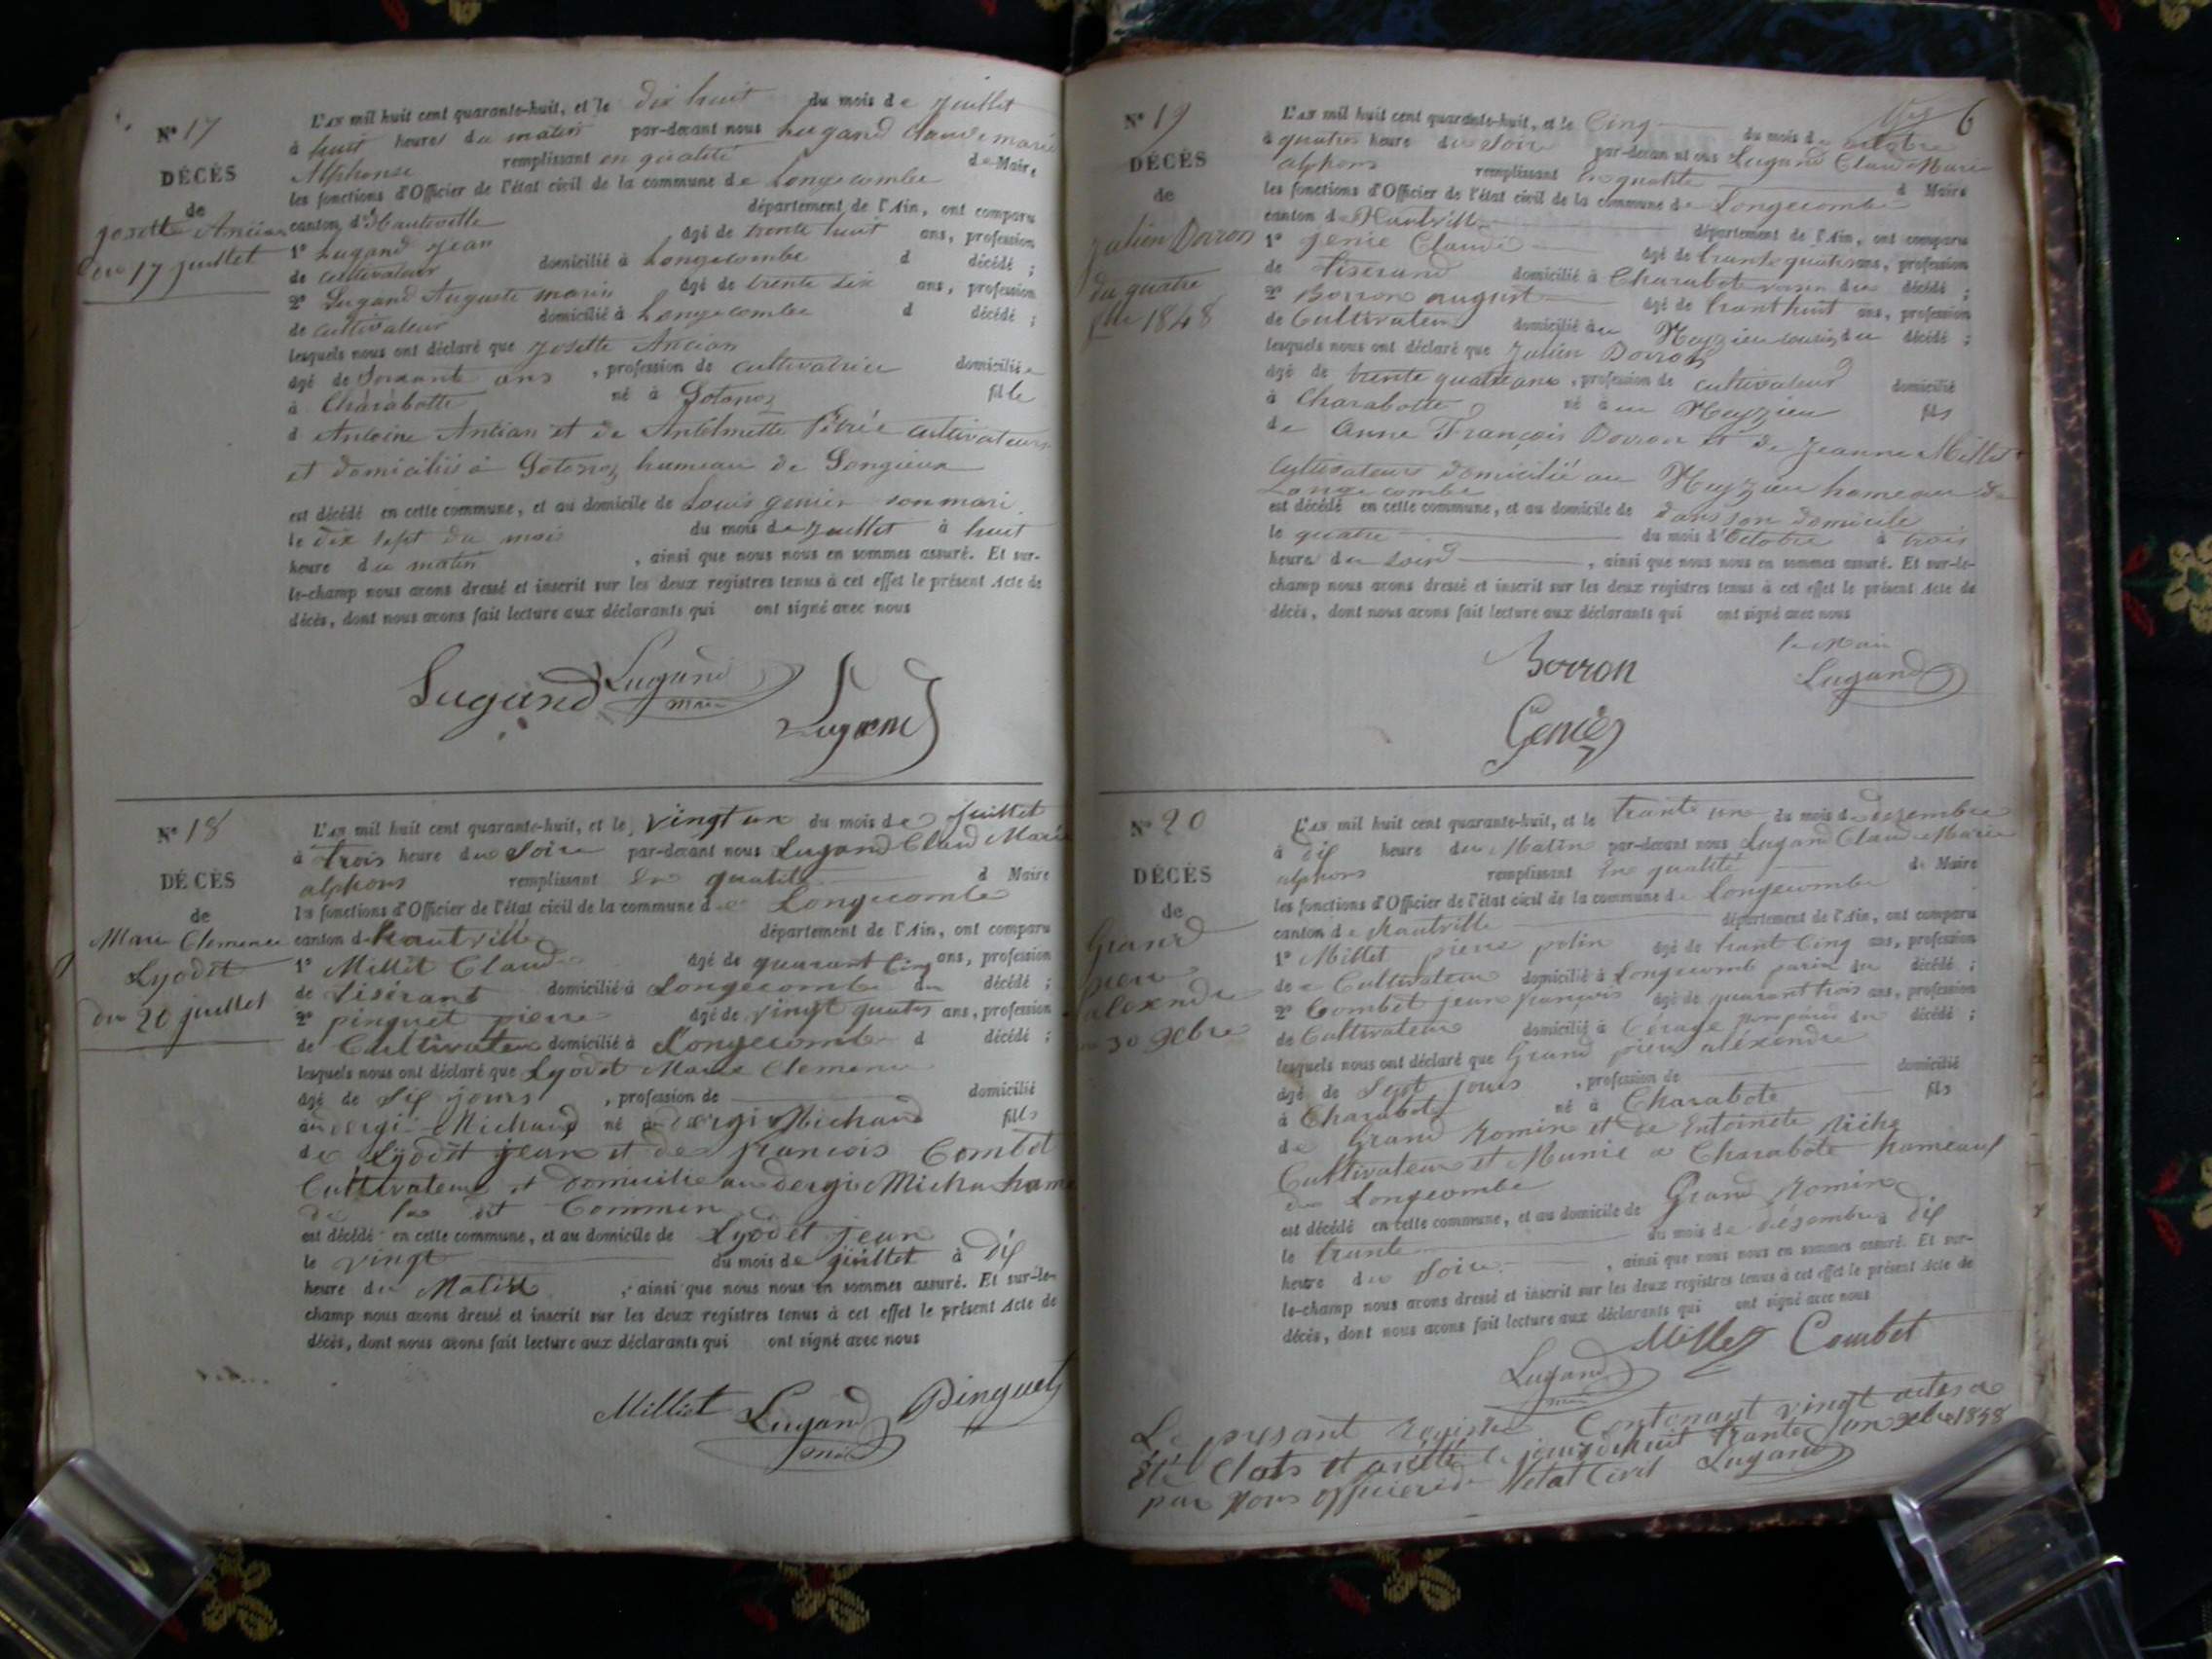 N° 17
DÉCÈS
de
Josette Ancian
du 17 juillet
L'AN mil huit cent quarante-huit, et le dix huit du mois de juillet
à huit heures du matin par-devant nous Lugand Claude marie
Alphonse remplissant en qualité de Maire
les fonctions d'Officier de l'état civil de la commune de Longecombe
canton d'Hauteville département de l'Ain, ont comparu
1° Lugand Jean âgé de trente huit ans, profession
de cultivateur domicilié à Longecombe d décédé ;
2° Lugand Auguste marin âgé de trente six ans, profession
de cultivateur domicilié à Longecombe d décédé ;
lesquels nous ont déclaré que Josette Ancian
âgé de Soixante ans , profession de cultivatrice domiciliée
à Charabotte né à Sotonoz fille
d Antoine Ancian et de Antelmette cultivateurs
et domiciliés à Sotonoz hameau de Songieux
est décédé en cette commune, et au domicile de Louis genier son mari
le dix sept du mois du mois de juillet à huit
heure du matin , ainsi que nous nous en sommes assuré. Et sur-
le-champ nous avons dressé et inscrit sur les deux registres tenus à cet effet le présent Acte de
décès, dont nous avons fait lecture aux déclarants qui ont signé avec nous
Lugand Lugand
maire
Lugand
N° 18
DÉCÈS
de
Marie Clemence
Lyodet
du 20 juillet
L'AN mil huit cent quarante-huit, et le vingt un du mois de juillet
à trois heure du Soire par-devant nous Lugand Claud Marie
alphons remplissant En qualite d Maire
les fonctions d'Officier de l'état civil de la commune de Longecombe
canton d hautville département de l'Ain, ont comparu
1° Milliet Claude âgé de quarant Cinq ans, profession
de tisérant domicilié à Longecombe du décédé ;
2° pinguet pierre âgé de vingt quatre ans, profession
de Cultivateur domicilié à Longecombe d décédé ;
lesquels nous ont déclaré que Lyodet Marie Clemence
âgé de dix jours , profession de domicilié
au dergi Michaud né au dergi Michaud fills
de Lyodet jean et de francois Combet
Cultivateur et domicilie au dergi Micha hame
de la dit Commun
est décédé en cette commune, et au domicile de Lyodet jean
le vingt du mois de juillet à dix
heure du Matin , ainsi que nous nous en sommes assuré. Et sur-le-
champ nous avons dressé et inscrit sur les deux registres tenus à cet effet le présent Acte de
décès, dont nous avons fait lecture aux déclarants qui ont signé avec nous
Milliet Lugand Pinguet
maire
6
N° 19
DÉCÈS
de
Julien Borron
du quatre
1848
L'AN mil huit cent quarante-huit, et le Cinq du mois de octobre
à quatre heure du Soire par-devant nous Lugand Claud Marie
alphons remplissant En qualité d Maire
les fonctions d'Officier de l'état civil de la commune de Longecombe
canton de Hautville département de l'Ain, ont comparu
1° Jenie Claude âgé de trante quatre ans, profession
de tiserand domicilié à Charabot voisin du décédé ;
2° Borron august âgé de trant huit ans, profession
de Cultivateur domicilié au Heyzieu cousin du décédé ;
lesquels nous ont déclaré que Julien Borron
âgé de trente quatre ans , profession de cultivateur domicilié
à Charabotte né au Heyzieu fils
de Anne François Borron et de Jeanne Millet
Cultivateurs domicilié au Heyzieu hameau de
Longecombe
est décédé en cette commune, et au domicile de dans son domicile
le quatre du mois d'Octobre à trois
heure du soir , ainsi que nous nous en sommes assuré. Et sur-le-
champ nous avons dressé et inscrit sur les deux registres tenus à cet effet le présent Acte de
décès, dont nous avons fait lecture aux déclarants qui ont signé avec nous
le Maire
Borron Lugand
Genier
N° 20
DÉCÈS
de
Grand
pierre
alexendre
30 Xbre
L'AN mil huit cent quarante-huit, et le trante un du mois de dezembre
à dix heure du Matin par-devant nous Lugand Claud Marie
alphons remplissant En qualité de Maire
les fonctions d'Officier de l'état civil de la commune de Longecombe
canton de hautville département de l'Ain, ont comparu
1° Millet pierre polin âgé de trant Cinq ans, profession
de Cultivateur domicilié à Longecomb parin du décédé ;
2° Combet jean françois âgé de quarant trois ans, profession
de Cultivateur domicilié à du décédé ;
lesquels nous ont déclaré que Grand pierre aléxendre
âgé de Sept jours , profession de domicilié
à Charabote né à Charabote fils
de Grand Romin et de Entoinete Richa
Cultivateur et Munie a Charabote hameaux
de Longecombe
est décédé en cette commune, et au domicile de Grand Romin
le trante du mois de désembre à dix
heure du Soire , ainsi que nous nous en sommes assuré. Et sur-
le-champ nous avons dressé et inscrit sur les deux registres tenus à cet effet le présent Acte de
décès, dont nous avons fait lecture aux déclarants qui ont signé avec nous
Lugand Millet Combet
maire
Le present registre Contenant vingt actes a
Été Clots et arêtté le jourdhuit trante un Xbre 1848
par Nous officier de l'état Civil Lugand